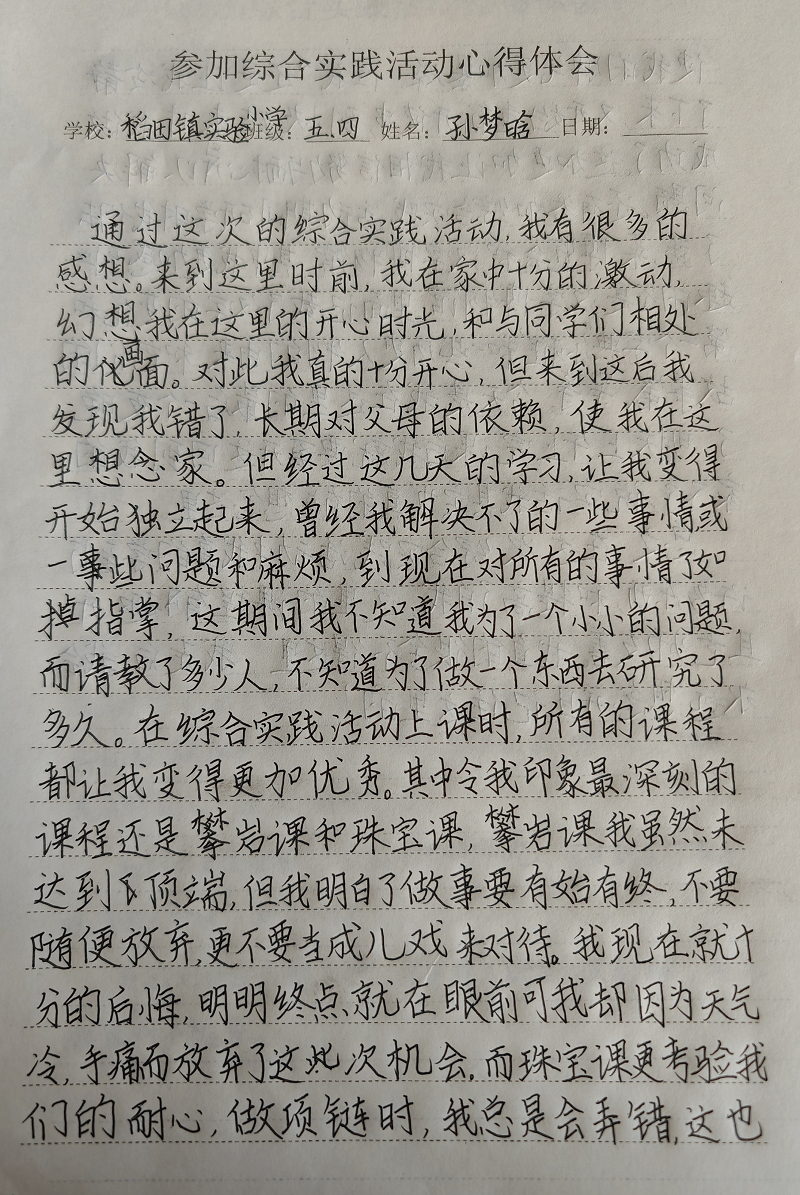 参加综合实践活动心得体会
学校：稻田镇实验小学班级：五.四 姓名：孙梦晗 日期：
通过这次的综合实践活动，我有很多的
感想。来到这里时前，我在家中十分的激动，
幻想我在这里的开心时光，和与同学们相处
的画面。对此我真的十分开心，但来到这后我
发现我错了，长期对父母的依赖，使我在这
里想念家。但经过这几天的学习，让我变得
开始独立起来，曾经我解决不了的一些事情或
一事些问题和麻烦，到现在对所有的事情了如
掉指掌，这期间我不知道我为了一个小小的问题，
而请教了多少人，不知道为了做一个东西去研究了
多久。在综合实践活动上课时，所有的课程
都让我变得更加优秀。其中令我印象最深刻的
课程还是攀岩课和珠宝课，攀岩课我虽然未
达到顶端，但我明白了做事要有始有终，不要
随便放弃，更不要当成儿戏来对待。我现在就十
分的后悔，明明终点就在眼前可我却因为天气
冷，手痛而放弃了这此次机会，而珠宝课更考验我
们的耐心，做项链时，我总是会弄错，这也